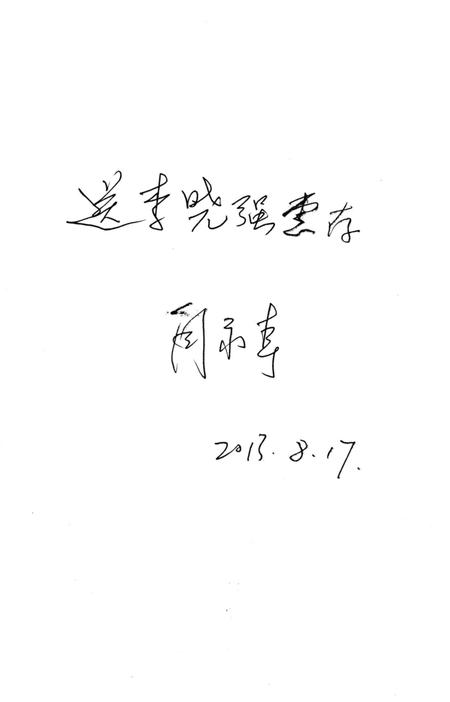 送李晓强惠存
周
2013.8.17.